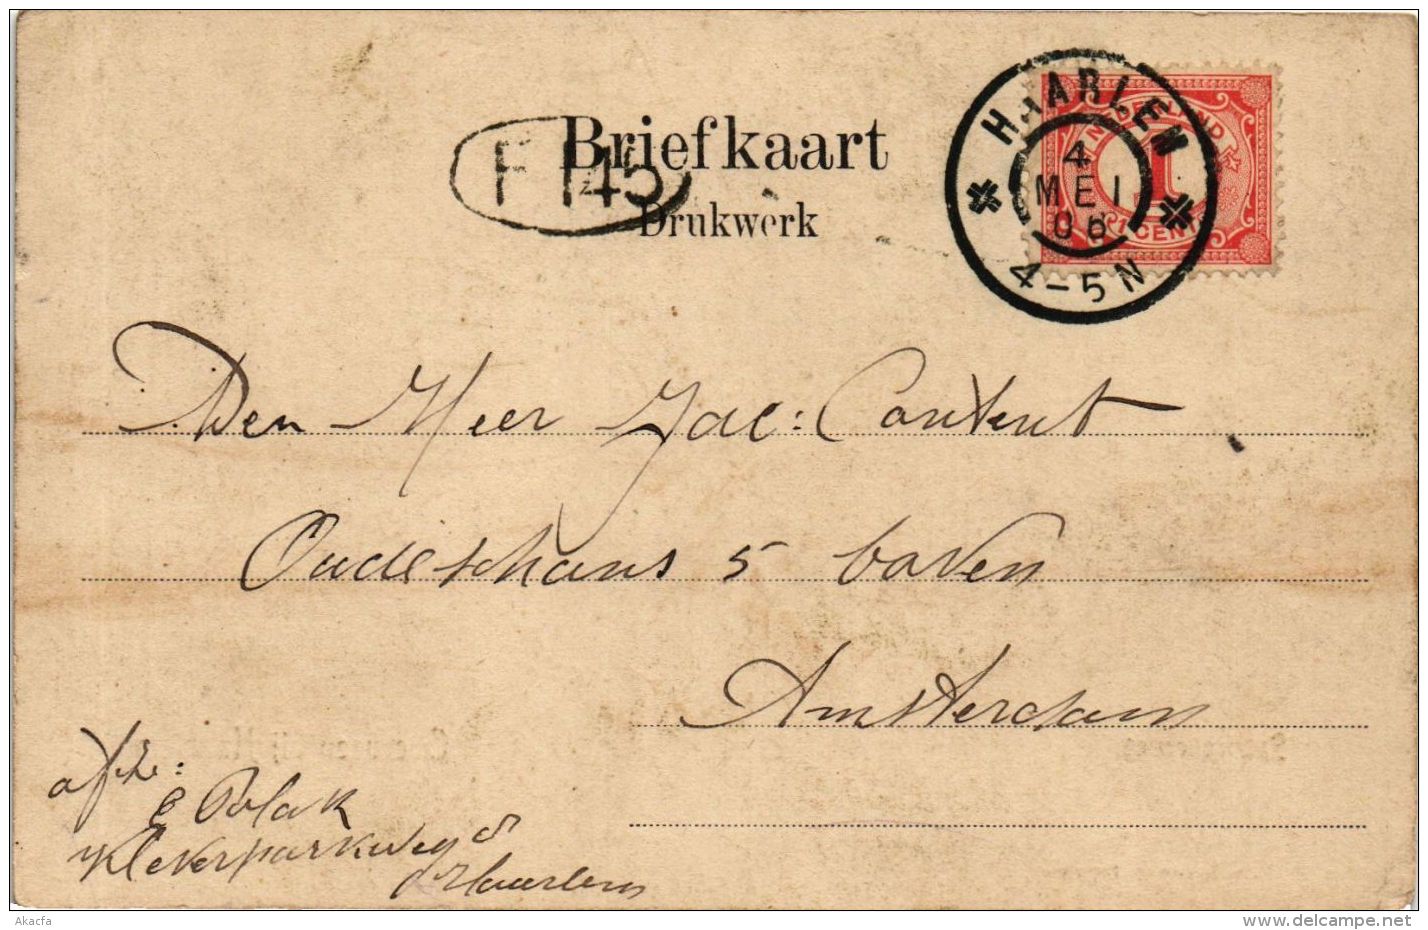 Briefkaart
Drukwerk
F 145
HAARLEM
4
MEI
06
4-5N
NEDERLAND
1
1 CENT
Den Heer Jac: Content
Oudeschans 5 boven
Amsterdam
afz:
E Polak
Kleverparkweg 8
Haarlem
Akacfa
www.delcampe.net